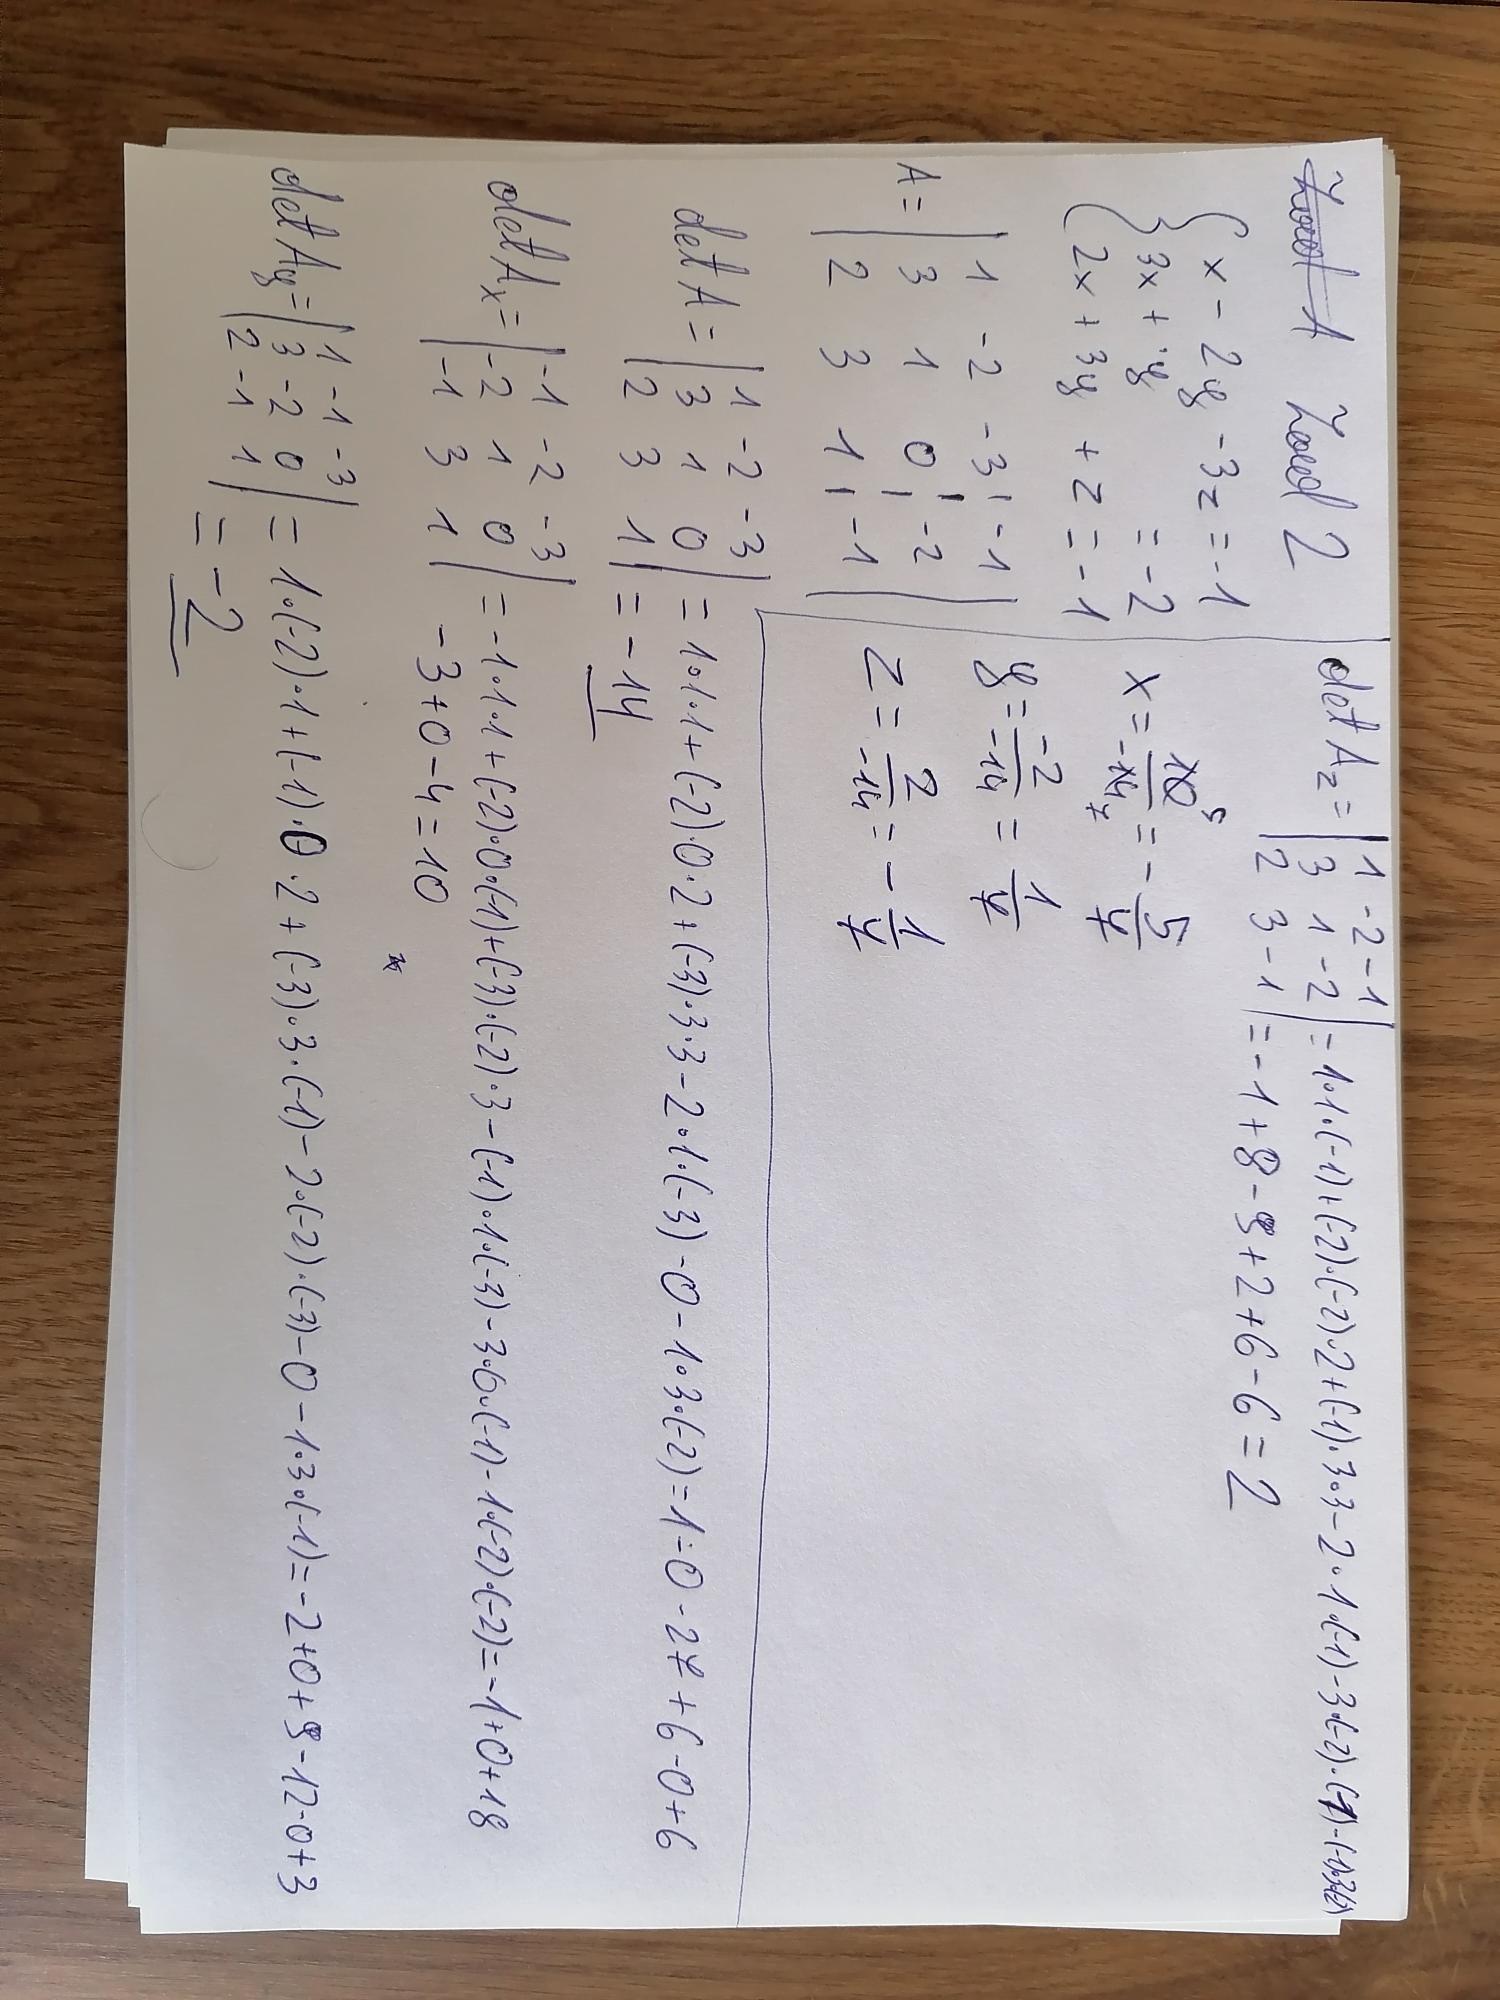 Zad 2
x - 2y - 3z = -1
3x + y = -2
2x + 3y + z = -1
A = | 1 -2 -3 ¦ -1 |
3 1 0 ¦ -2
2 3 1 ¦ -1
det A = | 1 -2 -3 |
3 1 0 = 1·1·1+(-2)·0·2+(-3)·3·3-2·1·(-3)-0-1·3·(-2)=1-0-27+6-0+6
2 3 1 = -14
det Ax = | -1 -2 -3 |
-2 1 0 = -1·1·1+(-2)·0·(-1)+(-3)·(-2)·3-(-1)·1·(-3)-3·0·(-1)-1·(-2)·(-2)=-1+0+18
-1 3 1 -3+0-4=10
det Ay = | 1 -1 -3 |
3 -2 0 = 1·(-2)·1+(-1)·0·2+(-3)·3·(-1)-2·(-2)·(-3)-0-1·3·(-1)=-2+0+9-12-0+3
2 -1 1 = -2
det Az = | 1 -2 -1 |
3 1 -2 = 1·1·(-1)+(-2)·(-2)·2+(-1)·3·3-2·1·(-1)-3·(-2)·(1)-(-1)·3·(2)
2 3 -1 = -1+8-9+2+6-6=2
x = 10/-14 = -5/7
y = -2/-14 = 1/7
z = 2/-14 = -1/7